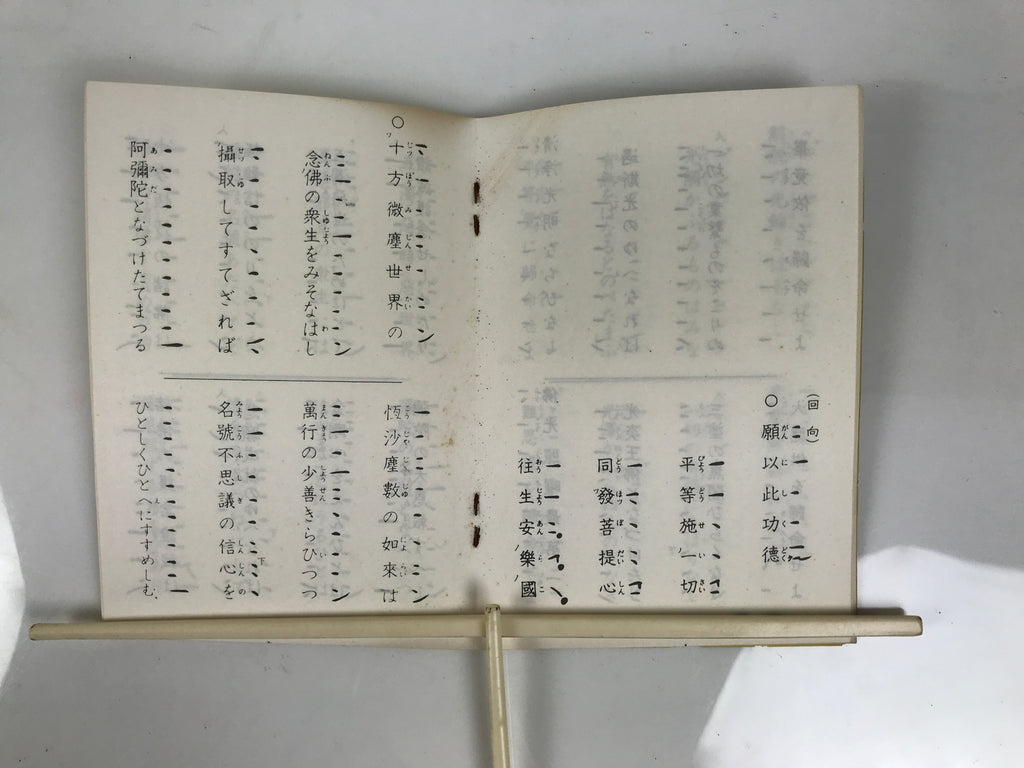 (回向)
○願以此功德
平等施一切
同發菩提心
往生安樂國
○十方微塵世界の
念佛の衆生をみそなはし
攝取してすてざれば
阿彌陀となづけたてまつる
恆沙塵數の如來は
萬行の少善きらひつつ
名號不思議の信心を
ひとしくひとへにすすめしむ、